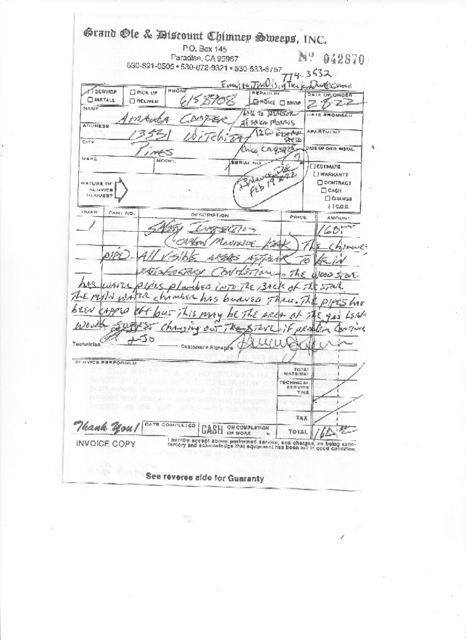 Grand Ole & Discount Chimney Sweeps, INC.
P.O. Box 145
Paradise, CA 95967
530-891-0505 • 530-872-9321 • 530-533-8757
Nº 042870
774-3632
SERVICE
INSTALL
PICK UP
DELIVER
PHONE
6158908
REPAIR IN
HOME
SHOP
DATE OF ORDER
2-8-22
NAME
Cooper
DATE PROMISED
ADDRESS
13531 Witchita
APARTMENT
CITY
Pines
MAKE
MODEL
SERIAL NO.
Feb 19
NATURE OF SERVICE REQUEST
ESTIMATE
WARRANTY
CONTRACT
CASH
CHARGE
C.O.D.
QUAN.
PART NO.
DESCRIPTION
PRICE
AMOUNT
1
Safety Inspection
160
(Carbon Monoxide Leak) The chimney
pipe - All visible areas appear to be in
satisfactory condition - the wood stove
has water pipes plumbed into the back of the stove
the main water chamber has burned thru. The pipes have
been capped off but this may be the area of the gas leak
would suggest changing out the stove if problem continues
Technician
Customer Signature
SERVICE PERFORMED
TOTAL MATERIAL
TECHNICAL SERVICE TIME
TAX
Thank You!
DATE COMPLETED
CASH ON COMPLETION OF WORK
TOTAL
160
INVOICE COPY
I hereby accept above performed service, and charges, as being satis-
factory and acknowledge that equipment has been left in good condition.
See reverse side for Guaranty